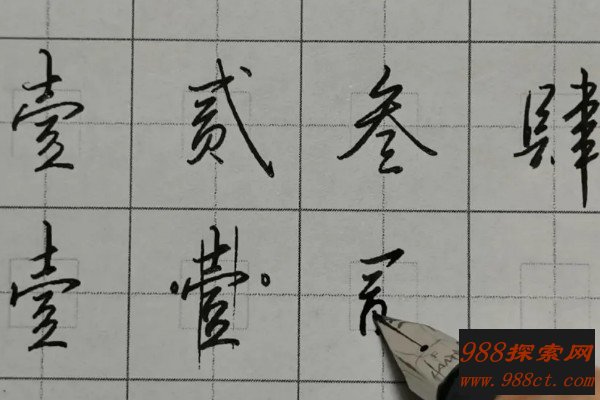 壹 贰 叁 肆
壹 壹
988探索网
www.988ct.com